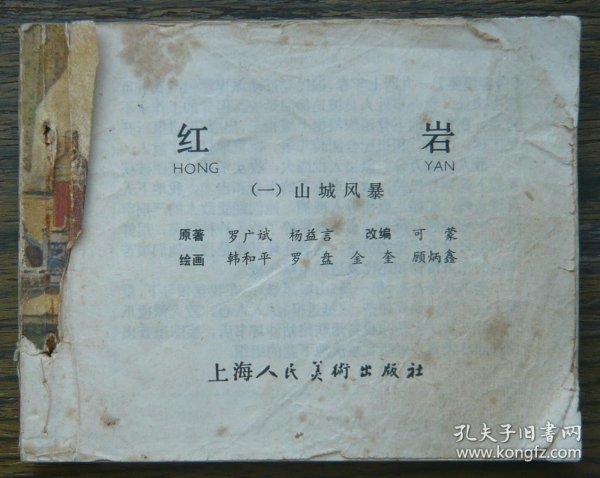 红 岩
HONG YAN
(一)山城风暴
原著 罗广斌 杨益言 改编 可蒙
绘画 韩和平 罗盘 金奎 顾炳鑫
上海人民美術出版社
孔夫子旧书网
www.kongfz.com